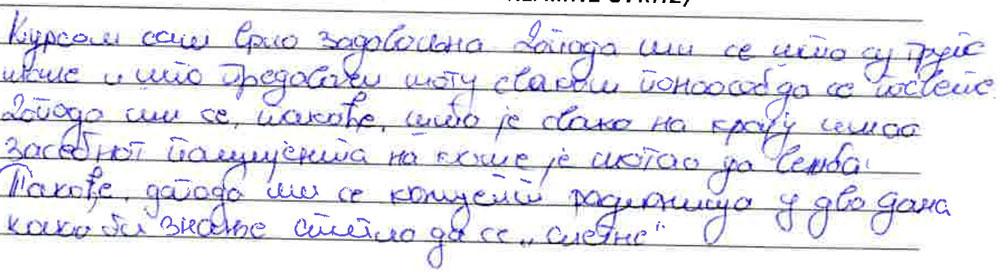 Курсом сам врло задовољна. Допада ми се што су групе
мање и што предавачи могу сваком понаособ да се посвете.
Допада ми се, такође, што је свако на крају имао
засебног пацијента на коме је могао да вежба.
Такође, допада ми се концепт радионица у два дана
како би знање стигло да се "слегне"